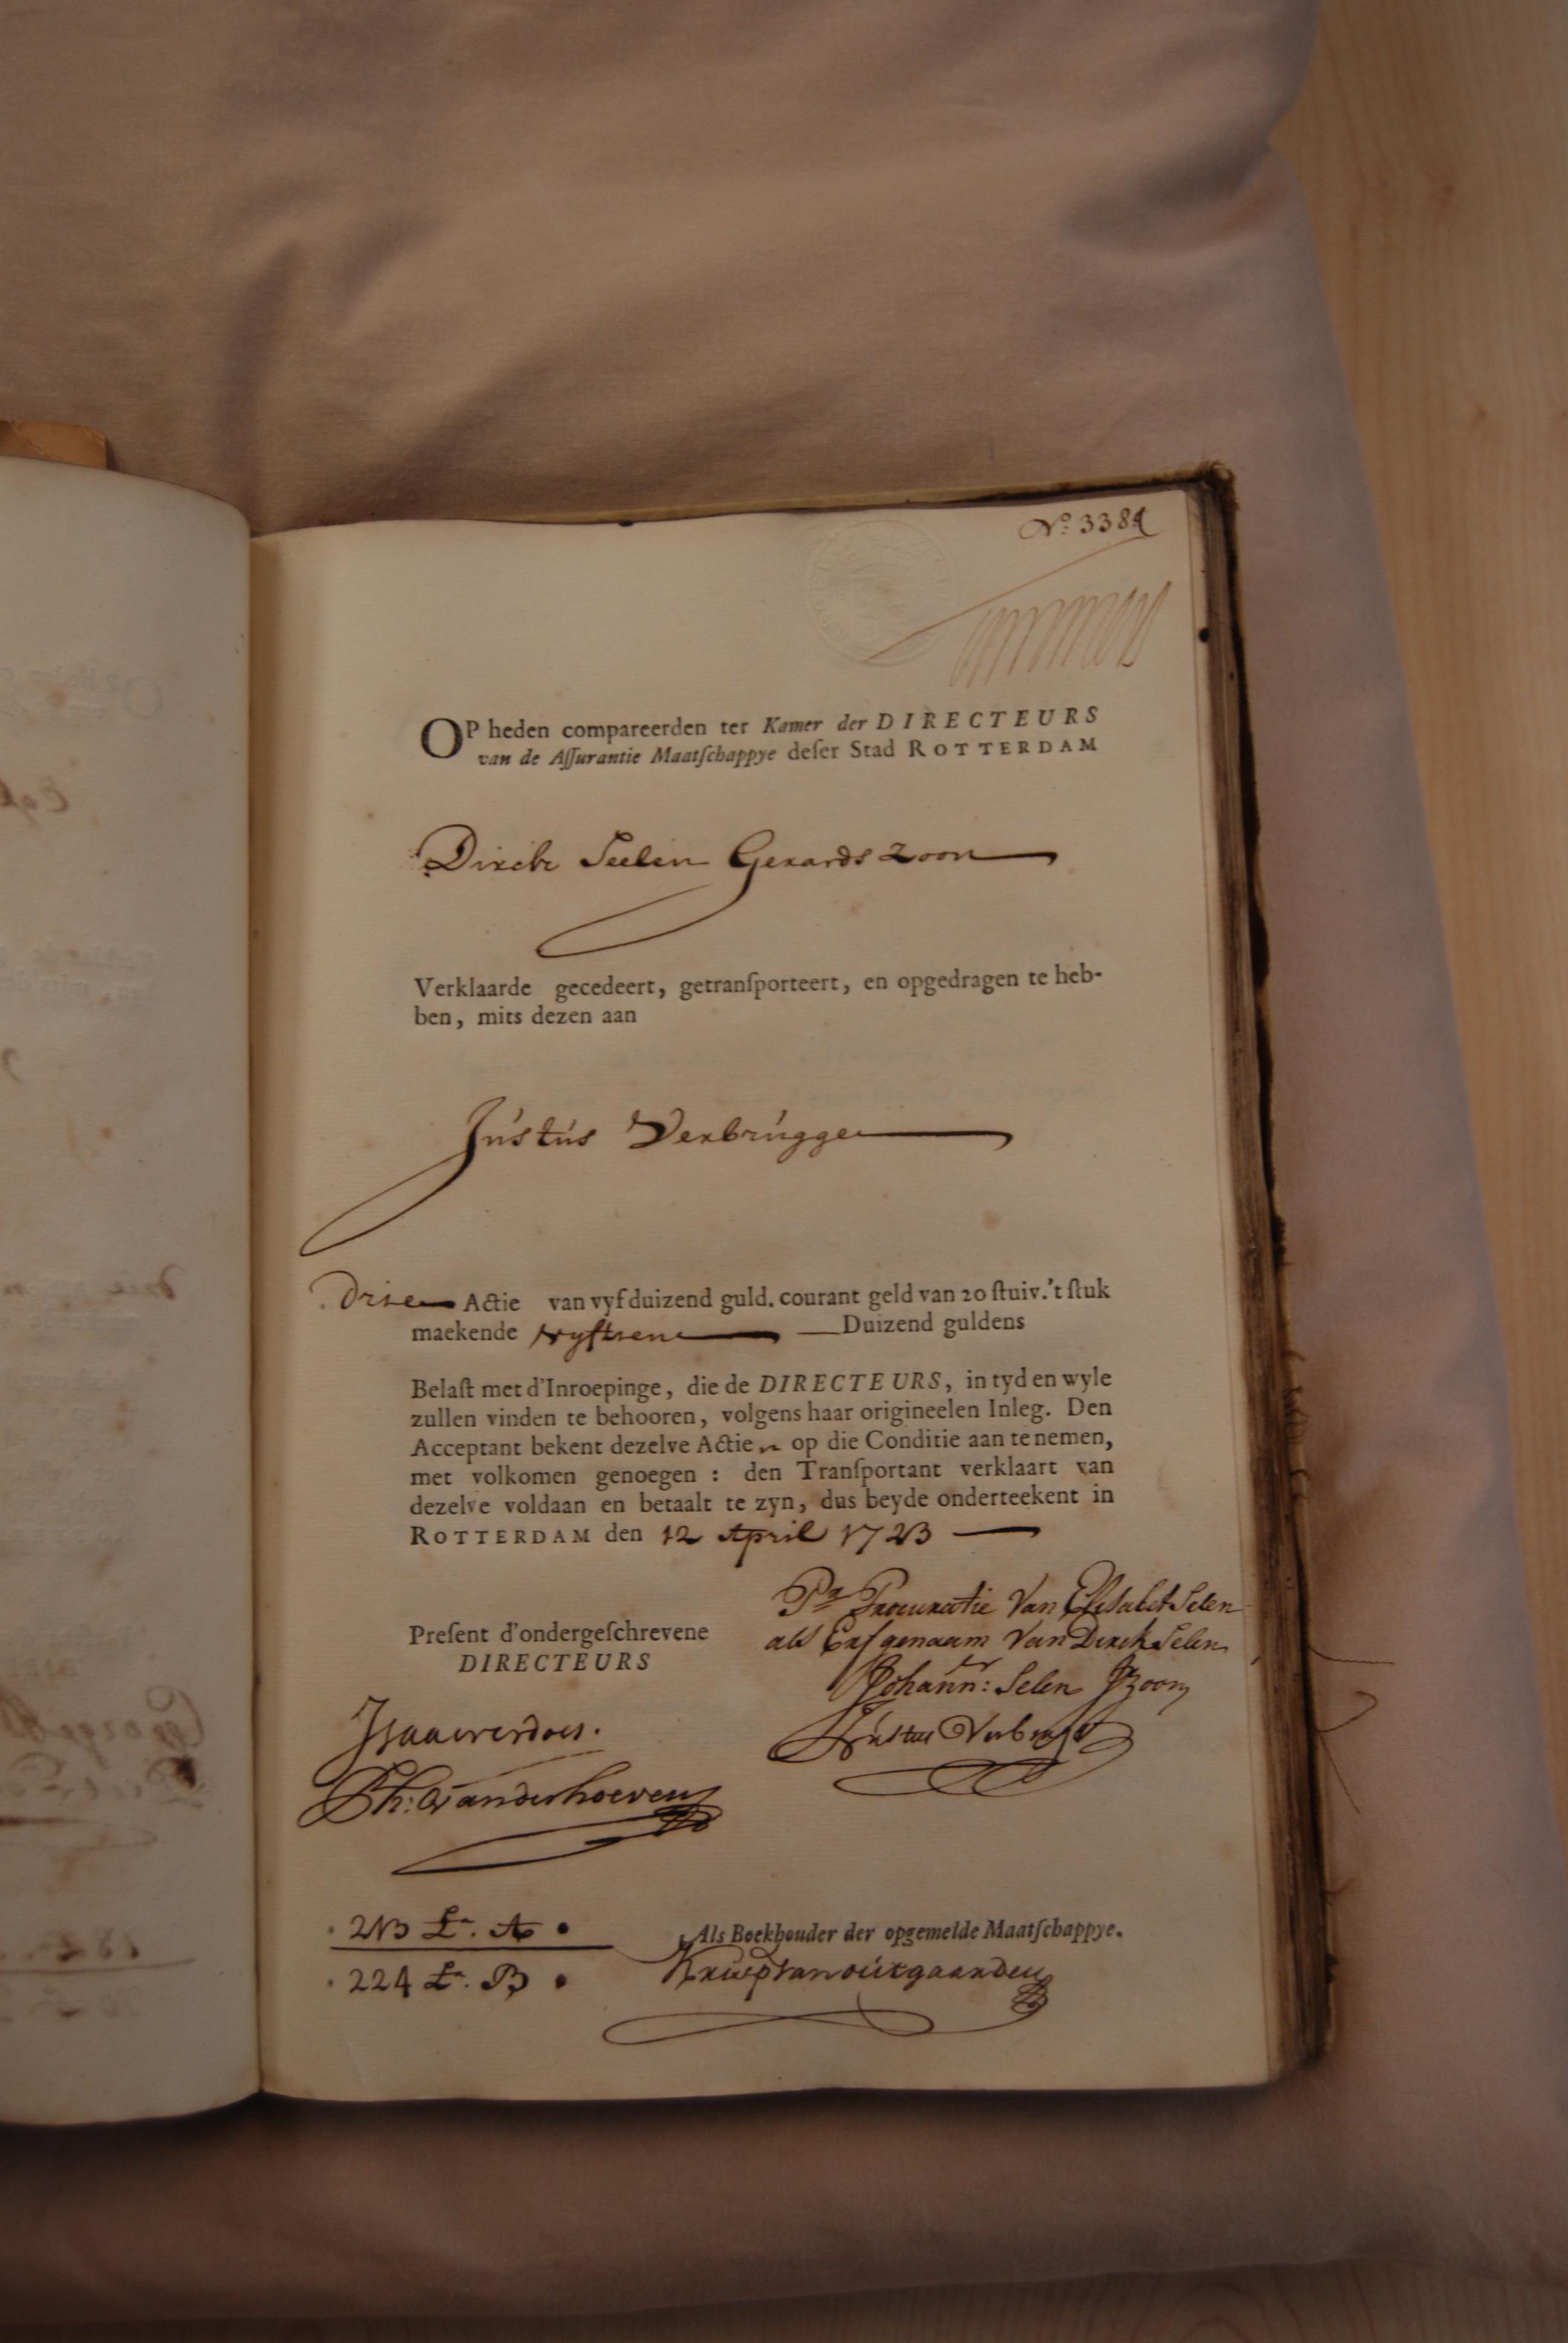 No: 3384
OP heden compareerden ter Kamer der DIRECTEURS
van de Aſſurantie Maatſchappye deſer Stad ROTTERDAM
Dirck Seelen Gerards Zoon
Verklaarde gecedeert, getranſporteert, en opgedragen te heb-
ben, mits dezen aan
Justus Verbrugge
Drie Actie van vyf duizend guld. courant geld van 20 ſtuiv. 't ſtuk
maekende vyftien Duizend guldens
Belaſt met d'Inroepinge, die de DIRECTEURS, in tyd en wyle
zullen vinden te behooren, volgens haar origineelen Inleg. Den
Acceptant bekent dezelve Actien op die Conditie aan te nemen,
met volkomen genoegen : den Tranſportant verklaart van
dezelve voldaan en betaalt te zyn, dus beyde onderteekent in
ROTTERDAM den 12 April 1723
Pr Procuratie Van Elisabet Selen
als Erfgenaam Van Dirck Selen
Johann: Selen Jzoon
Justus Verbrugge
Preſent d'ondergeſchrevene
DIRECTEURS
Ph: Vanderhoeven
213 Lr. A
224 Lr. B
Als Boekhouder der opgemelde Maatſchappye.